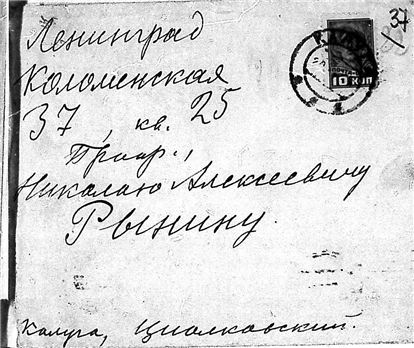 Ленинград
Коломенская
37, кв. 25
Николаю Алексеевичу
Рынину.
Калуга, Циолковский.
10 КОП
37